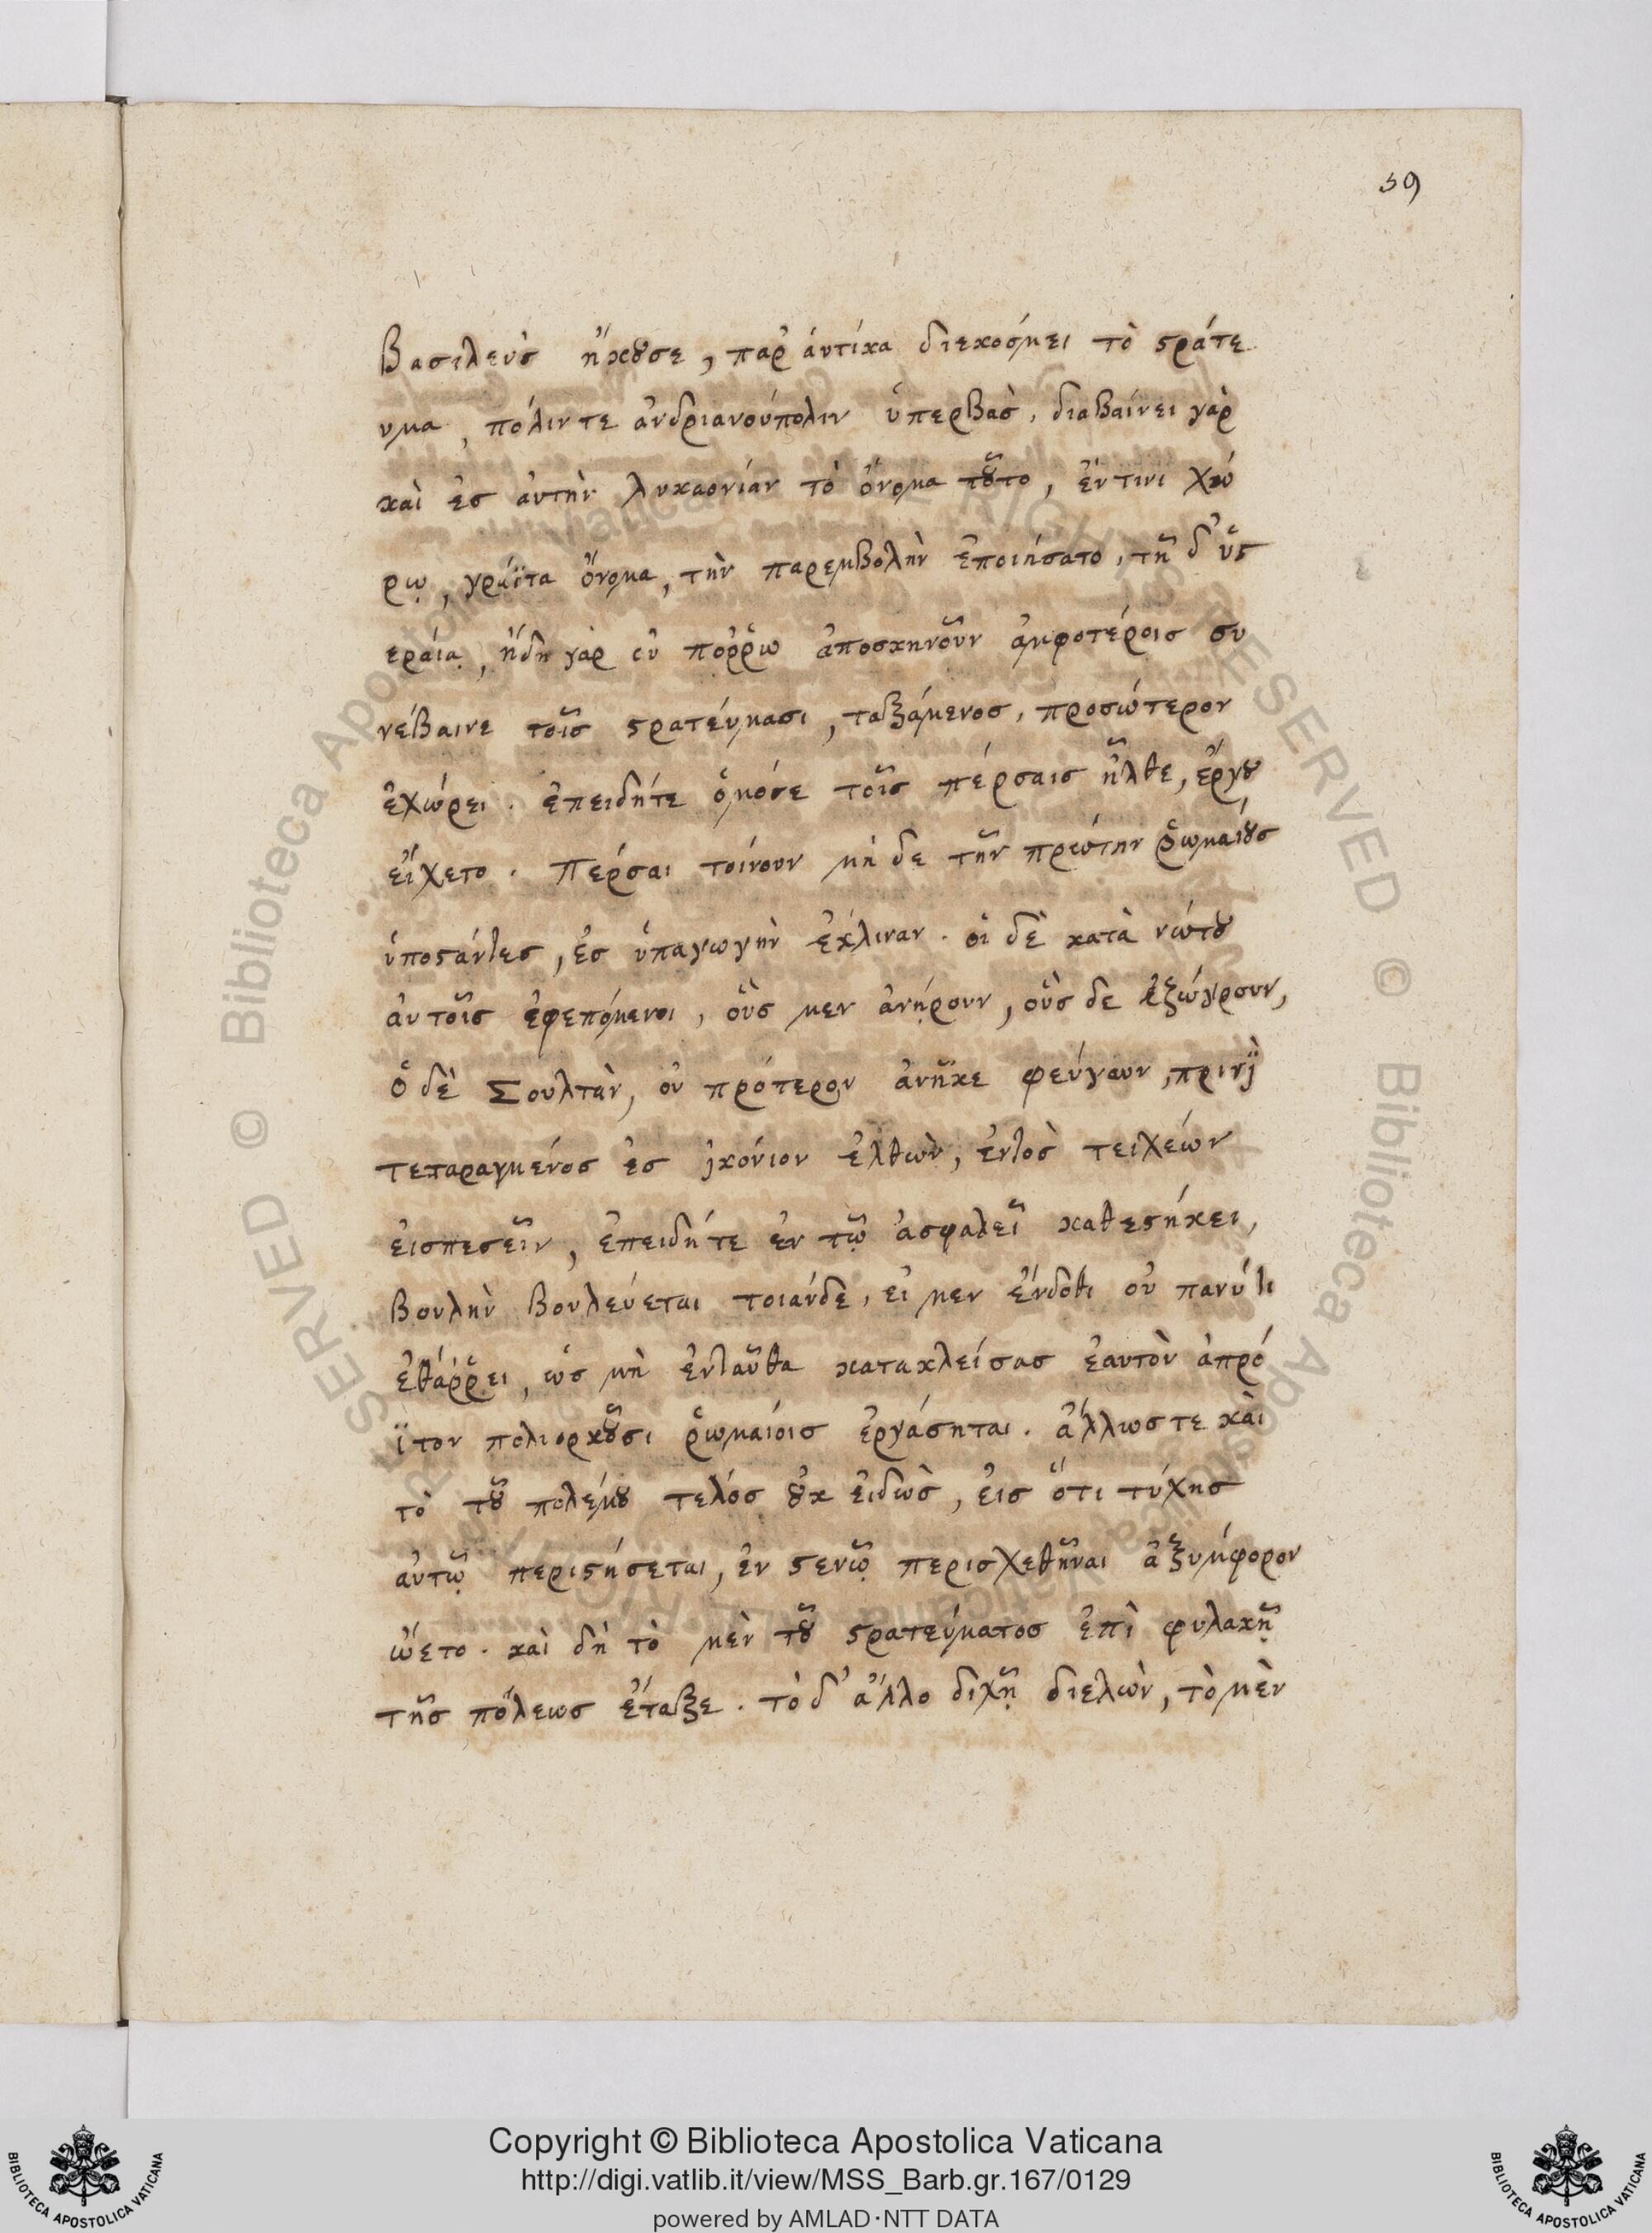 59
Βασιλευς ἤκουσε, παρ αὐτίκα διεκοσμει τὸ στράτε
υμα, πόλιν τε ἀνδριανούπολιν ὑπερβὰς, διαβαίνει γὰρ
καὶ ἐς αὐτὴν λυκαονίαν τὸ ὄνομα τοῦτο, ἔν τινι χώ
ρῳ, γράϊτα ὄνομα, τὴν παρεμβολὴν ἐποιήσατο, τῇ δ' ὑσ
εραίᾳ, ἤδη γὰρ οὐ πόῤῥω ἀποσκηνοῦν ἀμφοτέροις συ
νέβαινε τοῖς στρατεύμασι, ταξάμενος, προσώτερον
ἐχώρει. ἐπειδήτε ὁμόσε τοῖς πέρσαις ἦλθε, ἔργου
εἴχετο. Πέρσαι τοίνουν μή δε τῆν πρώτην ῥωμαίους
ὑποστάντες, ἐς ὑπαγωγὴν ἔκλιναν. οἱ δὲ κατὰ νώτου
αὐτοῖς ἐφεπόμενοι, οὓς μεν ἀνῄρουν, οὓς δε ἐξώγρουν,
ὁ δὲ Σουλτὰν, οὐ πρότερον ἀνῆκε φεύγων, πρινὴ
τεταραγμένος ἐς ἰκόνιον ἐλθὼν, ἐντὸς τειχεών
εἰσπεσεῖν, ἐπειδήτε ἐν τῷ ἀσφαλεῖ καθεστήκει,
βουλὴν βουλεύεται τοιάνδε, εἰ μεν ἔνδοθι οὐ πανύ τι
ἐθάῤῥει, ὡς μὴ ἐνταῦθα κατακλείσας ἑαυτὸν ἀπρό
ϊτον πολιορκοῦσι ῥωμαίοις ἐργάσηται. ἄλλωστε καὶ
τὸ τοῦ πολέμου τελός οὐκ εἰδὼς, εἰς ὅτι τύχης
αὐτῷ περιστήσεται, ἐν στενῷ περισχεθῆναι ἀξύμφορον
ᾤετο. καὶ δή τὸ μὲν τοῦ στρατεύματος ἐπὶ φυλακῇ
τῆς πόλεως ἔταξε. τὸ δ' ἄλλο διχῇ διελὼν, τὸ μὲν
Copyright © Biblioteca Apostolica Vaticana
http://digi.vatlib.it/view/MSS_Barb.gr.167/0129
powered by AMLAD·NTT DATA